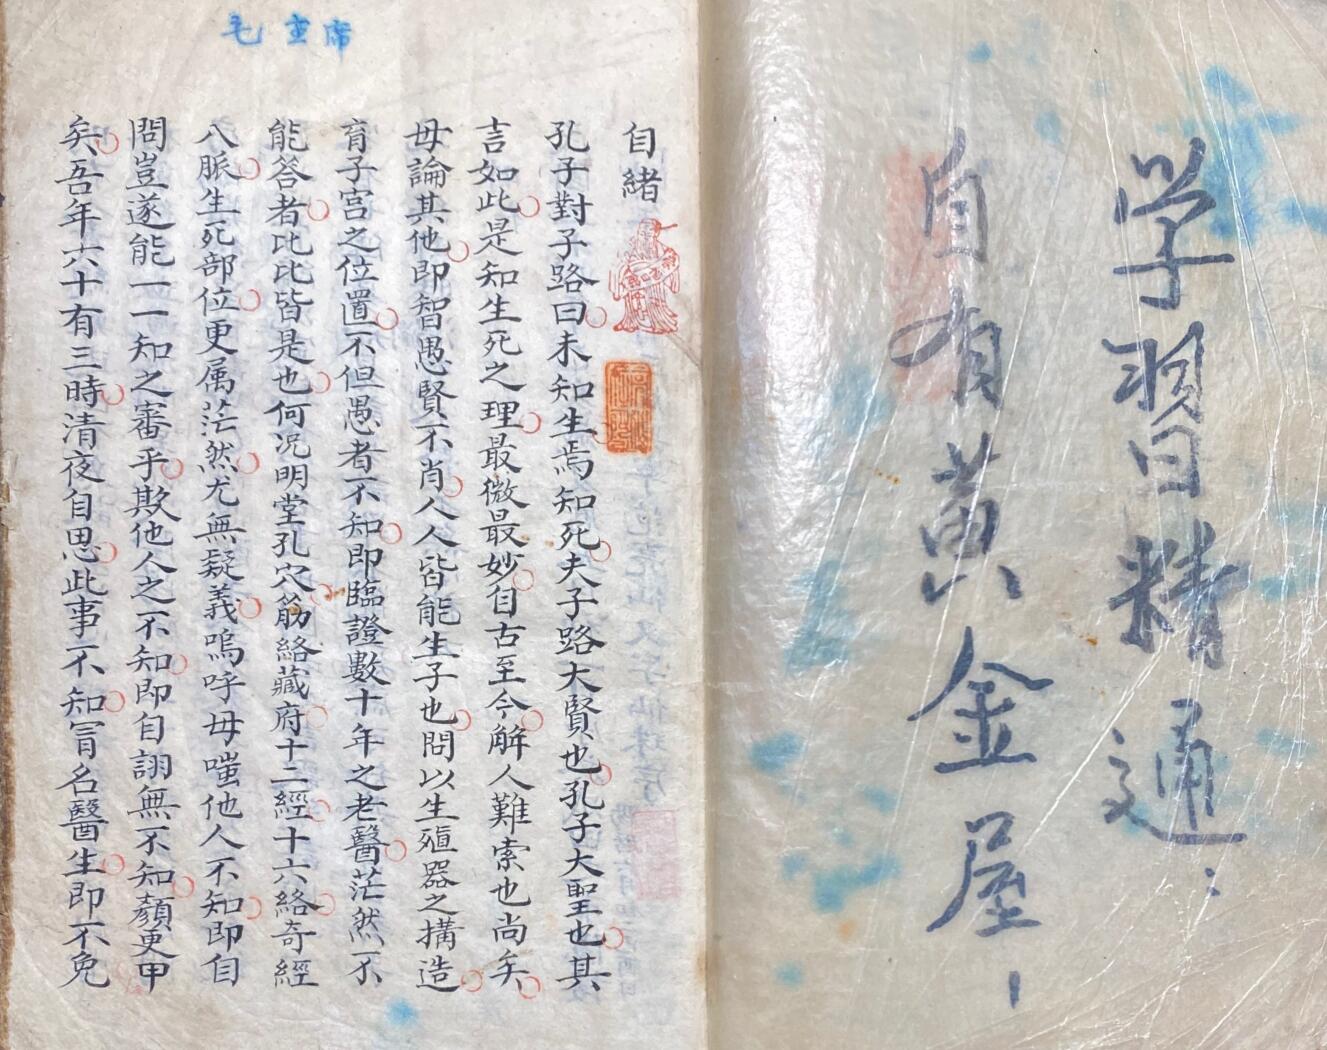 学習精通
自有黄金屋
毛主席
自緒
孔子對子路曰未知生焉知死夫子路大賢也孔子大聖也其
言如此是知生死之理最微最妙自古至今解人難索也尚矣
毋論其他即智愚賢不肖人人皆能生子也問以生殖器之搆造
育子宮之位置不但愚者不知即臨證數十年之老醫茫然不
能答者比比皆是也何况明堂孔穴筋絡藏府十二經十六絡奇經
八脈生死部位更属茫然尤無疑義嗚呼毋嗤他人不知即自
問豈遂能一一知之審乎欺他人之不知即自詡無不知顏更甲
矣吾年六十有三時清夜自思此事不知冒名醫生即不免